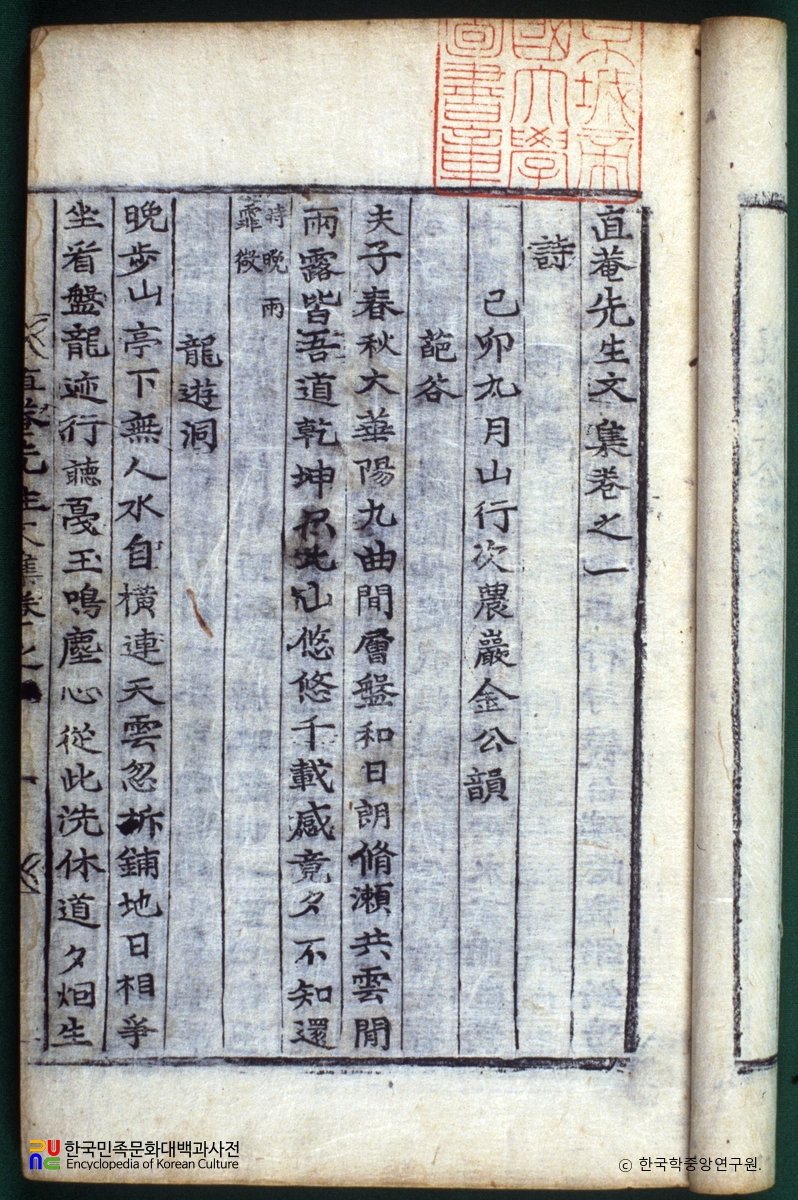 京城帝
國大學
圖書章
直菴先生文集卷之一
詩
己卯九月山行次農巖金公韻
葩谷
夫子春秋大華陽九曲間層盤和日朗脩瀨共雲閒
雨露皆吾道乾坤此仙悠悠千載感竟夕不知還
時晚雨
霏微
龍遊洞
晩步山亭下無人水自橫連天雲忽拆鋪地日相爭
坐看盤龍迹行聽戞玉鳴塵心從此洗休道夕烟生
直菴先生文集卷之一
한국민족문화대백과사전
Encyclopedia of Korean Culture
ⓒ 한국학중앙연구원.